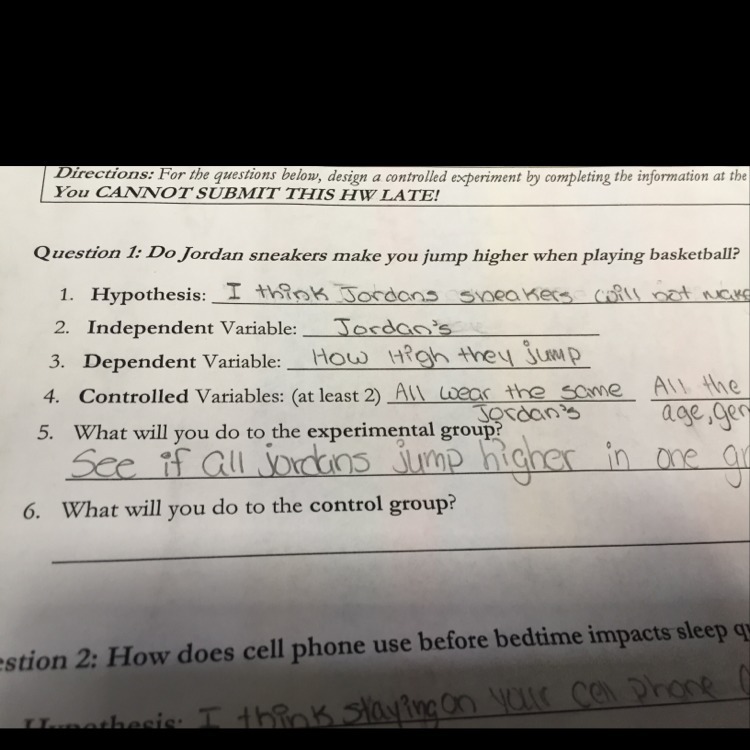 Directions: For the questions below, design a controlled experiment by completing the information at the
You CANNOT SUBMIT THIS HW LATE!
Question 1: Do Jordan sneakers make you jump higher when playing basketball?
1. Hypothesis: I think Jordans sneakers will not make
2. Independent Variable: Jordan's
3. Dependent Variable: How High they jump
4. Controlled Variables: (at least 2) All wear the same All the
Jordan's age, gen
5. What will you do to the experimental group?
See if all jordans jump higher in one gr
6. What will you do to the control group?
estion 2: How does cell phone use before bedtime impacts sleep qu
Hypothesis: I think staying on your cell phone